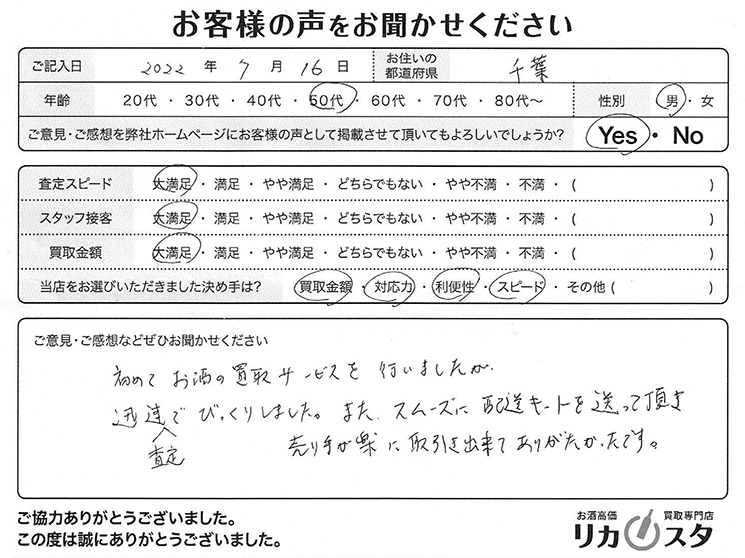 お客様の声をお聞かせください
ご記入日 2022 年 7 月 16 日 お住いの都道府県 千葉
年齢 20代 ・ 30代 ・ 40代 ・ 50代 ・ 60代 ・ 70代 ・ 80代～ 性別 男 ・ 女
ご意見・ご感想を弊社ホームページにお客様の声として掲載させて頂いてもよろしいでしょうか? Yes ・ No
査定スピード 大満足 ・ 満足 ・ やや満足 ・ どちらでもない ・ やや不満 ・ 不満 ・ ( )
スタッフ接客 大満足 ・ 満足 ・ やや満足 ・ どちらでもない ・ やや不満 ・ 不満 ・ ( )
買取金額 大満足 ・ 満足 ・ やや満足 ・ どちらでもない ・ やや不満 ・ 不満 ・ ( )
当店をお選びいただきました決め手は? 買取金額 ・ 対応力 ・ 利便性 ・ スピード ・ その他 ( )
ご意見・ご感想などぜひお聞かせください
初めて お酒の買取サービスを 行いましたが、
迅速で びっくりしました。また、スムーズに 配送キットを送って頂き
査定
売り手が楽に取引き出来てありがたかったです。
ご協力ありがとうございました。
この度は誠にありがとうございました。
お酒高価 買取専門店
リカスタ